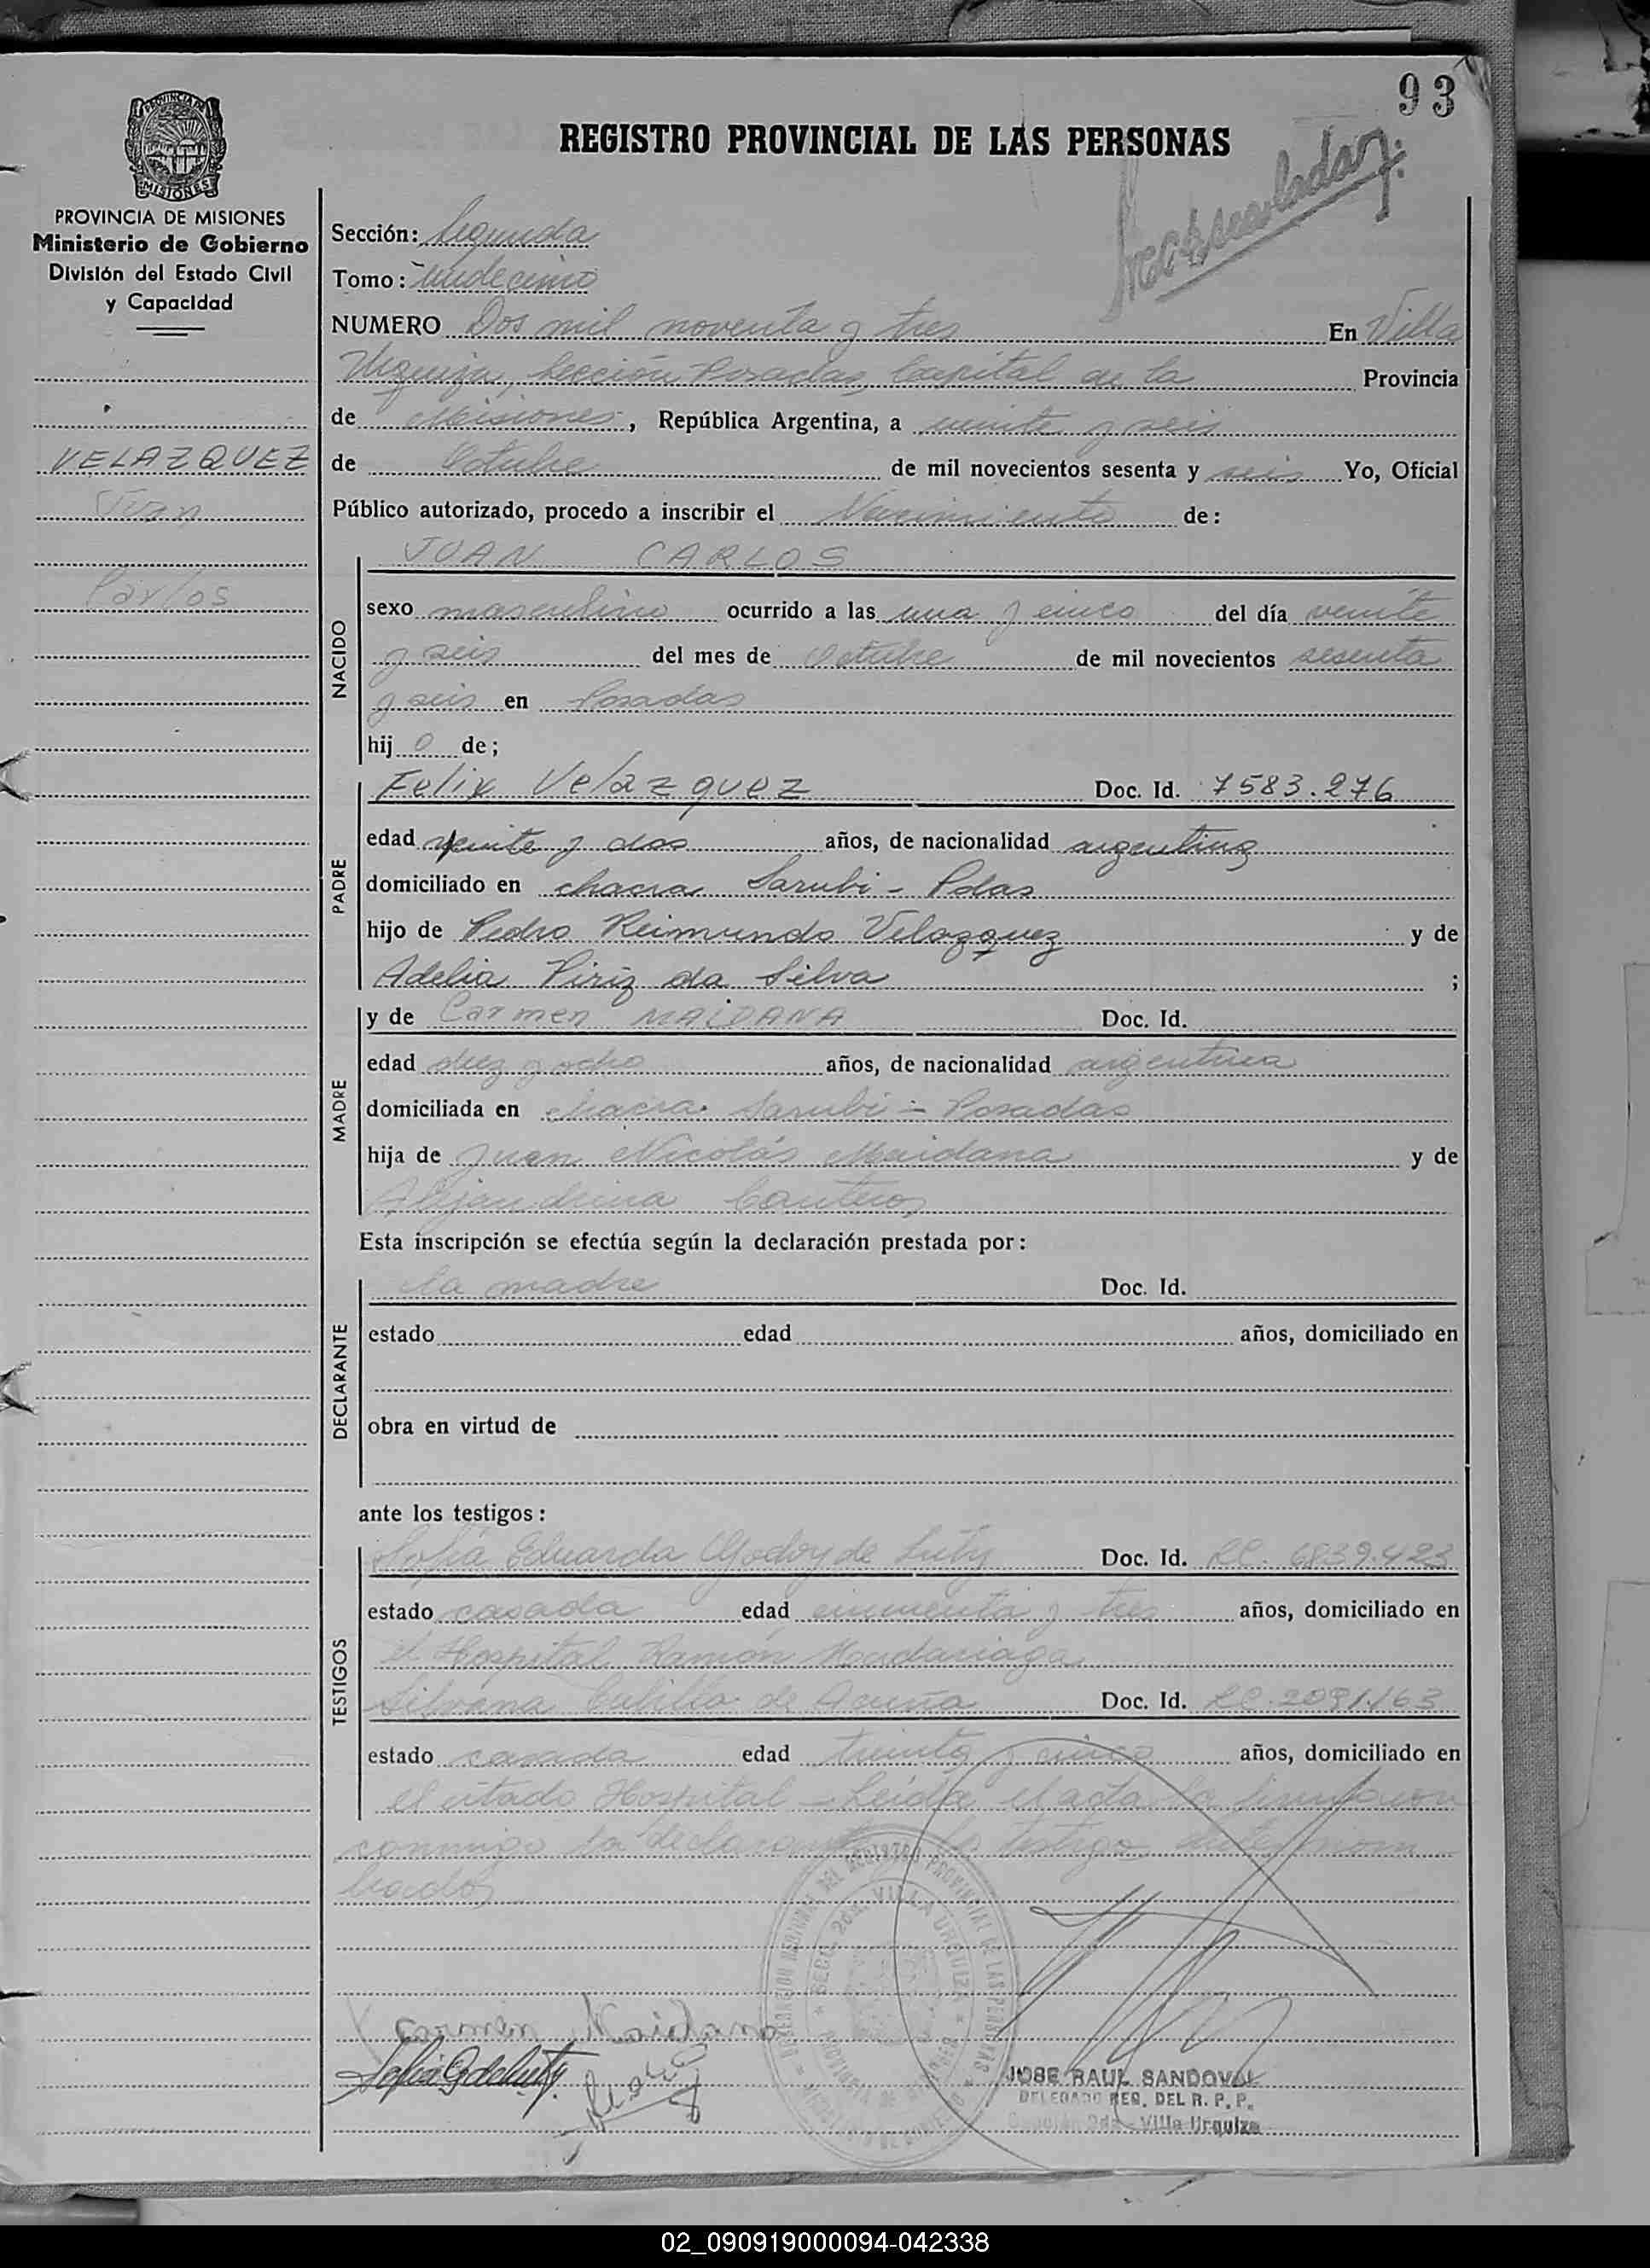 93
REGISTRO PROVINCIAL DE LAS PERSONAS
PROVINCIA DE MISIONES
PROVINCIA DE MISIONES
Ministerio de Gobierno
División del Estado Civil
y Capacidad
VELAZQUEZ
Juan
Carlos
Sección: Segunda
Tomo: Undecimo
NUMERO Dos mil noventa y tres En Villa
Urquiza, Sección Posadas, Capital de la Provincia
de Misiones, República Argentina, a veinte y seis
de Octubre de mil novecientos sesenta y seis Yo, Oficial
Público autorizado, procedo a inscribir el Nacimiento de:
NACIDO
JUAN CARLOS
sexo masculino ocurrido a las una y cinco del día veinte
y seis del mes de Octubre de mil novecientos sesenta
y seis en Posadas
hij o de;
PADRE
Felix Velazquez Doc. Id. 7583.276
edad veinte y dos años, de nacionalidad argentina
domiciliado en chacra Sarubi - Pdas
hijo de Pedro Reimundo Velazquez y de
Adelia Piriz da Silva ;
MADRE
y de Carmen MAIDANA Doc. Id.
edad diez y ocho años, de nacionalidad argentina
domiciliada en chacra Sarubi - Posadas
hija de Juan Nicolás Maidana y de
Alejandrina Canteros
Esta inscripción se efectúa según la declaración prestada por:
DECLARANTE
la madre Doc. Id.
estado edad años, domiciliado en
obra en virtud de
ante los testigos:
TESTIGOS
Sofía Eduarda Godoy de Doc. Id. LC. 6839.423
estado casada edad cincuenta y tres años, domiciliado en
el Hospital Ramón Madariaga
Silvana Cubilla de Acuña Doc. Id. LC. 2091.163
estado casada edad treinta y cinco años, domiciliado en
el citado Hospital - Leída el acta la firmaron
conmigo la declarante testigo
brados
Carmen Maidana
VILLA URQUIZA
JOSE RAUL SANDOVAL
DELEGADO REG. DEL R. P. P.
Sección 2da - Villa Urquiza
02_090919000094-042338